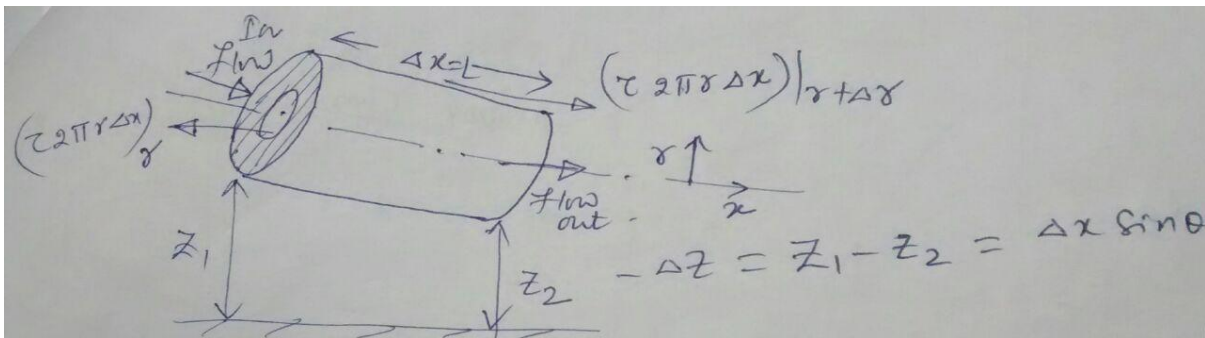 In
Flow
Δx=L
(τ 2πr Δx)|r+Δr
(τ 2πr Δx)r
r
x
Flow
out
Z1
Z2
-ΔZ = Z1 - Z2 = Δx Sinθ